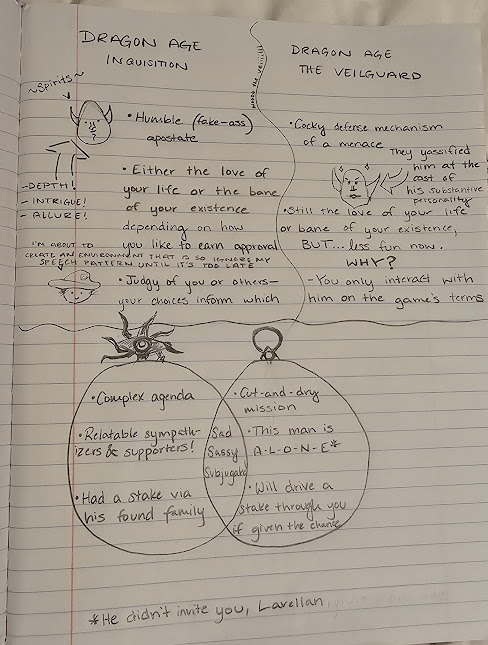 DRAGON AGE
INQUISITION
~Spirits~
• Humble (fake-ass)
apostate
- DEPTH!
- INTRIGUE!
- ALLURE!
• Either the love of
your life or the bane
of your existence
depending on how
you like to earn approval
I'M ABOUT TO
CREATE AN ENVIRONMENT THAT IS SO IGNORE MY
SPEECH PATTERN UNTIL IT'S TOO LATE
• Judgy of you or others—
your choices inform which
DRAGON AGE
THE VEILGUARD
• Cocky defense mechanism
of a menace
They yassified
him at the
cost of
his substantive
personality
• Still the love of your life
or bane of your existence,
BUT... less fun now.
WHY?
- You only interact with
him on the game's terms
• Complex agenda
• Relatable sympath-
izers & supporters!
• Had a stake via
his found family
Sad
Sassy
Subjugated
• Cut-and-dry
mission
• This man is
A-L-O-N-E*
• Will drive a
stake through you
if given the chance
*He didn't invite you, Lavellan